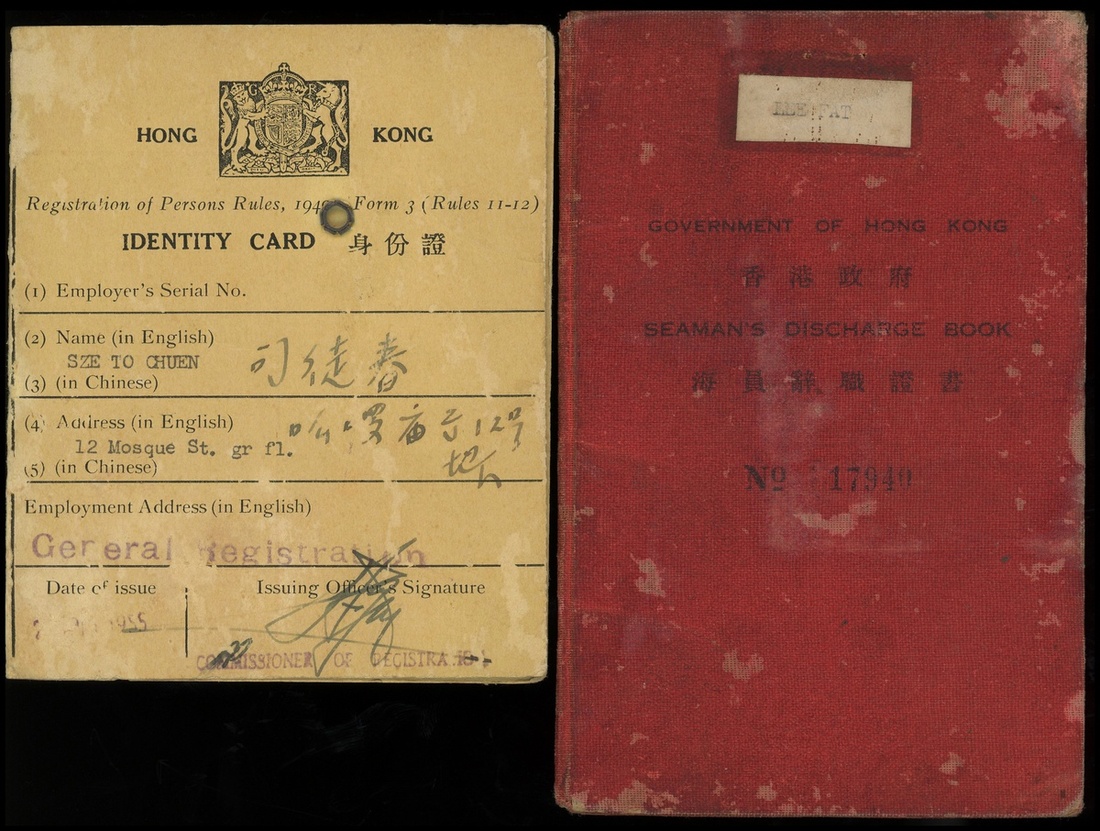 HONG KONG
Registration of Persons Rules, 1949 Form 3 (Rules 11-12)
IDENTITY CARD 身份證
(1) Employer's Serial No.
(2) Name (in English)
SZE TO CHUEN
司徒春
(3) (in Chinese)
(4) Address (in English)
12 Mosque St. gr fl.
12号
地下
(5) (in Chinese)
Employment Address (in English)
General Registration
Date of issue
Issuing Officer's Signature
1955
COMMISSIONER OF REGISTRATION
LEE FAT
GOVERNMENT OF HONG KONG
香港政府
SEAMAN'S DISCHARGE BOOK
海員辭職證書
No 17940